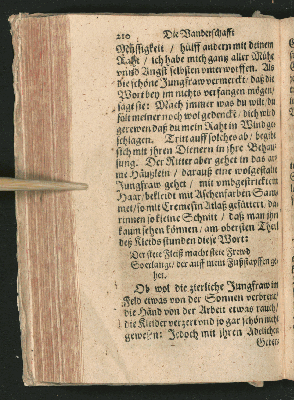 210 Die Wanderschafft
Müssigkeit / hülff andern mit deinem
Raht / ich habe mich gantz aller Mühe
vnnd Angst selbsten vnterworffen. Als
die schöne Jungfraw vermerckt / daß die
Wort bey jm nichts verfangen mögen /
sagt sie: Mach jmmer was du wilt / du
solt meiner noch wol gedencken / dich wird
gerewen daß du mein Raht in Wind ge-
schlagen. Tritt auff solches ab / begibt
sich mit jhren Dienern in jhre Behau-
sung. Der Ritter aber gehet in das ar-
me Häußlein / darauß eine wolgestalte
Jungfraw gehet / mit vmbgestricktem
Haar / bekleidt mit Aschenfarben Sam-
met / so mit Cremesin Atlaß gefüttert, da-
rinnen so kleine Schnitt / daß man jhn
kaum sehen können / am obersten Theil
deß Kleids stunden diese Wort:
Der stete Fleiß macht stete Frewd
So erlangt, der auff mein Fußstapffen ge-
het.
Ob wol die zierliche Jungfraw im
Feld etwas von der Sonnen verbrent /
die Händ von der Arbeit etwas rauch /
die Kleider verzert vnd so gar schön nicht
gewesen: Jedoch mit jhren Adelichen
Geber-